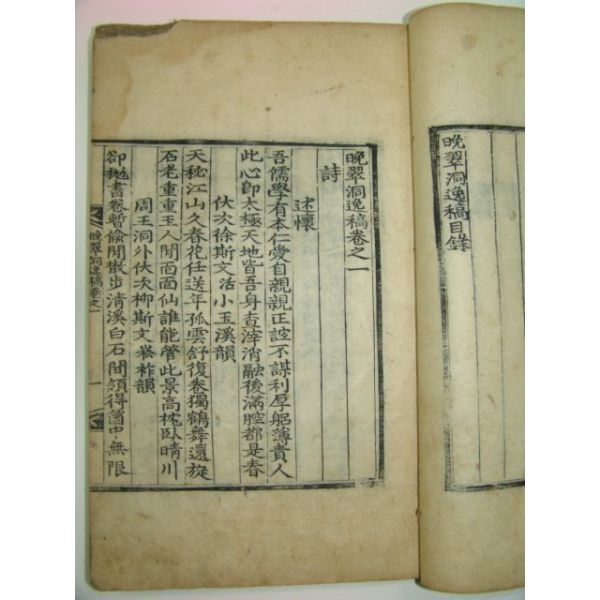 晚翠洞逸稿目錄
晚翠洞逸稿卷之一
詩
述懷
吾儒學有本仁愛自親親正誼不謀利厚躬薄責人
此心卽太極天地皆吾身查滓消融後滿腔都是春
伏次徐斯文活小玉溪韻
天秘江山久春花任送年孤雲舒復卷獨鶴舞還旋
石老重重玉人閒面面仙誰能管此景高枕臥晴川
周王洞外伏次柳斯文崇祚韻
卻抛書卷暫偸閒散步清溪白石間領得箇中無限
晚翠洞逸稿卷之一
一